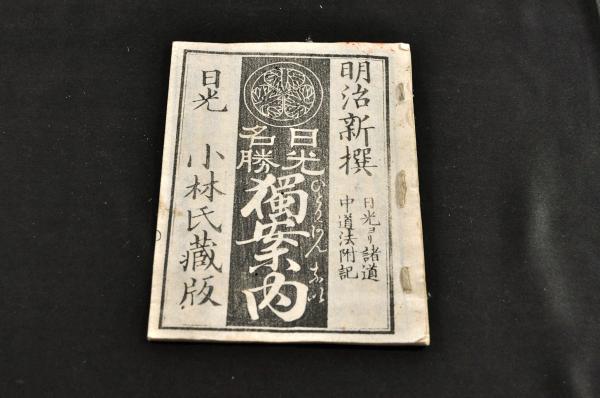 明治新撰
日光ヨリ諸道
中道法附記
日光
名勝
獨案内
ひとりあんない
日光 小林氏蔵版